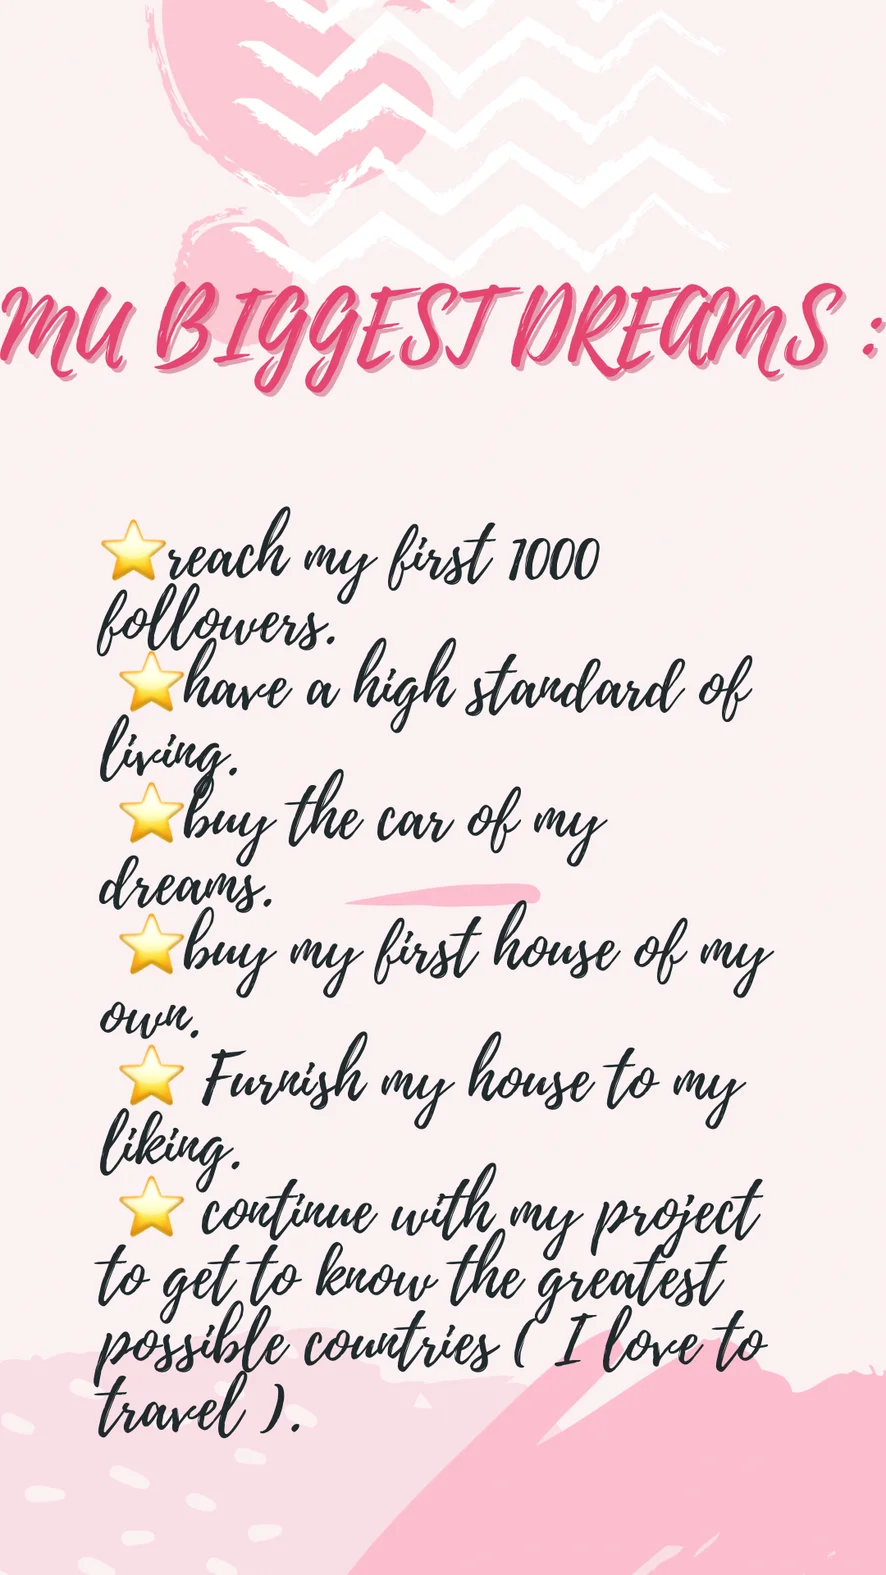 MU BIGGEST DREAMS :
⭐reach my first 1000
followers.
⭐have a high standard of
living.
⭐buy the car of my
dreams.
⭐buy my first house of my
own.
⭐ Furnish my house to my
liking.
⭐ continue with my project
to get to know the greatest
possible countries ( I love to
travel ).